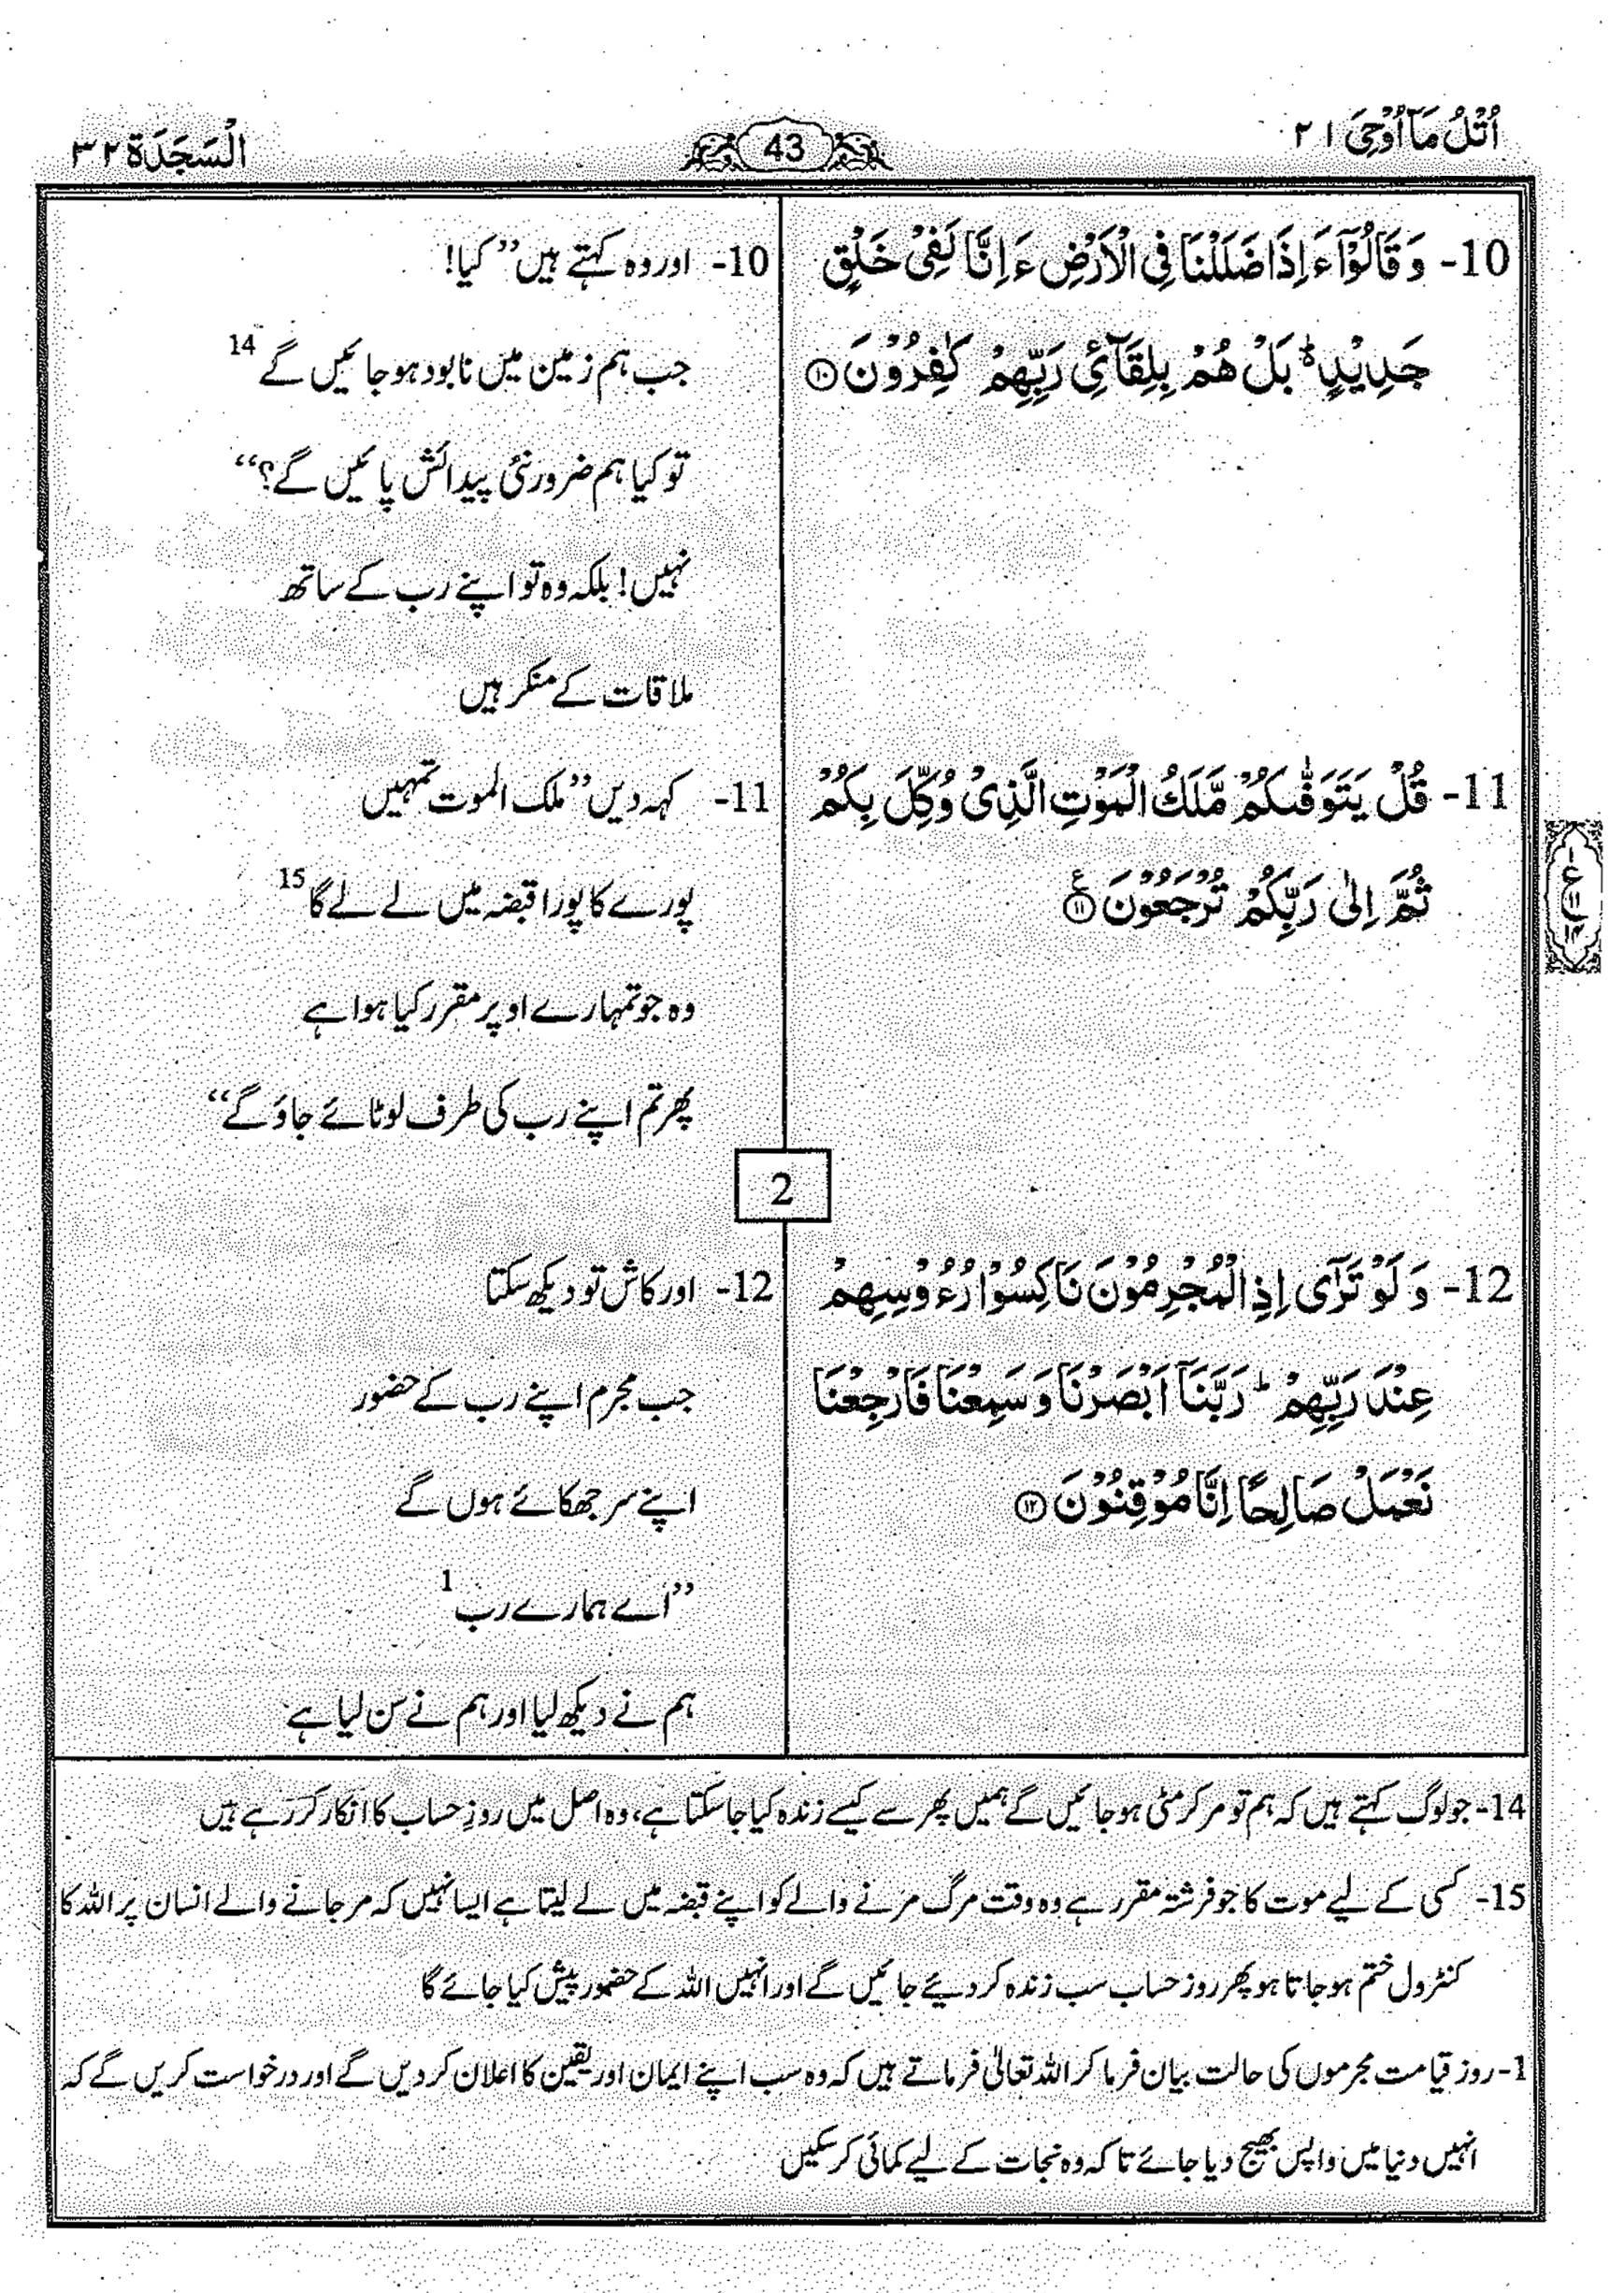 اُتْلُ مَآ اُوْحِیَ ۲۱
43
اَلسَّجْدَة ۳۲
10- وَ قَالُوْٓا ءَ اِذَا ضَلَلْنَا فِی الْاَرْضِ ءَ اِنَّا لَفِیْ خَلْقٍ
جَدِیْدٍ ؕ۬ بَلْ هُمْ بِلِقَآئِ رَبِّهِمْ کٰفِرُوْنَ ﴿۱۰﴾
10- اور وہ کہتے ہیں ’’کیا!
جب ہم زمین میں نابود ہو جائیں گے 14
تو کیا ہم ضرور نئی پیدائش پائیں گے؟‘‘
نہیں! بلکہ وہ تو اپنے رب کے ساتھ
ملاقات کے منکر ہیں
11- قُلْ یَتَوَفّٰىکُمْ مَّلَكُ الْمَوْتِ الَّذِیْ وُکِّلَ بِکُمْ
ثُمَّ اِلٰی رَبِّکُمْ تُرْجَعُوْنَ ﴿۱۱﴾
11- کہہ دیں ’’ملک الموت تمہیں
پورے کا پورا قبضہ میں لے لے گا 15
وہ جو تمہارے اوپر مقرر کیا ہوا ہے
پھر تم اپنے رب کی طرف لوٹائے جاؤ گے‘‘
2
12- وَ لَوْ تَرٰٓی اِذِ الْمُجْرِمُوْنَ نَاکِسُوْا رُءُوْسِهِمْ
عِنْدَ رَبِّهِمْ ؕ رَبَّنَآ اَبْصَرْنَا وَ سَمِعْنَا فَارْجِعْنَا
نَعْمَلْ صَالِحًا اِنَّا مُوْقِنُوْنَ ﴿۱۲﴾
12- اور کاش تو دیکھ سکتا
جب مجرم اپنے رب کے حضور
اپنے سر جھکائے ہوں گے
’’اے ہمارے رب 1
ہم نے دیکھ لیا اور ہم نے سن لیا ہے
14- جو لوگ کہتے ہیں کہ ہم تو مر کر مٹی ہو جائیں گے ہمیں پھر سے کیسے زندہ کیا جا سکتا ہے، وہ اصل میں روزِ حساب کا انکار کر رہے ہیں
15- کسی کے لیے موت کا جو فرشتہ مقرر ہے وہ وقت مرگ مرنے والے کو اپنے قبضہ میں لے لیتا ہے ایسا نہیں کہ مر جانے والے انسان پر اللہ کا
کنٹرول ختم ہو جاتا ہو پھر روز حساب سب زندہ کر دیئے جائیں گے اور انہیں اللہ کے حضور پیش کیا جائے گا
1- روز قیامت مجرموں کی حالت بیان فرما کر اللہ تعالیٰ فرماتے ہیں کہ وہ سب اپنے ایمان اور یقین کا اعلان کر دیں گے اور درخواست کریں گے کہ
انہیں دنیا میں واپس بھیج دیا جائے تاکہ وہ نجات کے لیے کمائی کر سکیں